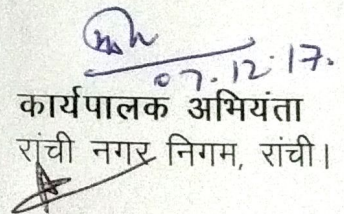 07.12.17.
कार्यपालक अभियंता
रांची नगर निगम, रांची।